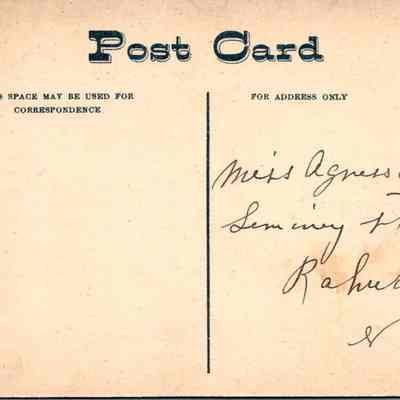 Post Card
SPACE MAY BE USED FOR
CORRESPONDENCE
FOR ADDRESS ONLY
Miss Agness
Seminey
Rahw
N